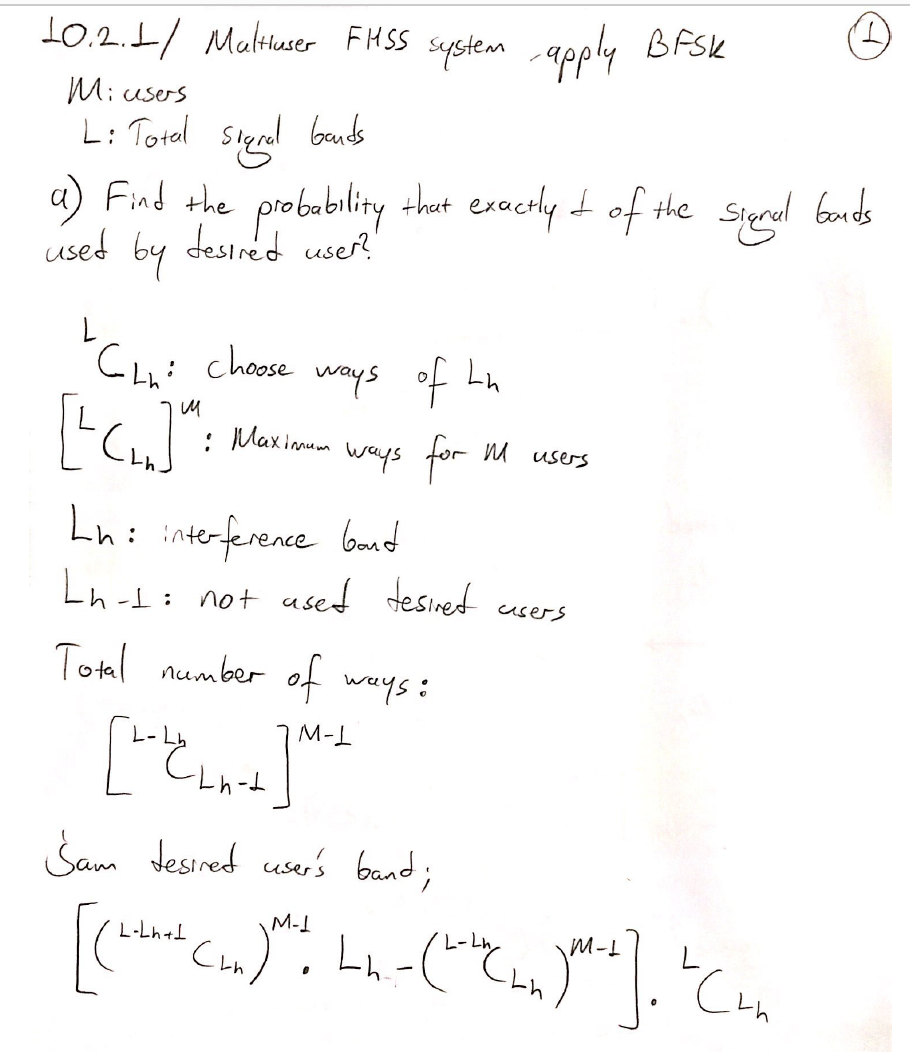 10.2.1/ Multiuser FHSS system - apply BFSK
①
M: users
L: Total signal bands
a) Find the probability that exactly 1 of the signal bands
used by desired user?
ᴸC_Lh: choose ways of Lh
[ᴸC_Lh]ᴹ : Maximum ways for M users
Lh: interference band
Lh-1: not used desired users
Total number of ways:
[ᴸ⁻ᴸʰC_Lh-1]ᴹ⁻¹
Sam desired user's band;
[(ᴸ⁻ᴸʰ⁺¹C_Lh)ᴹ⁻¹ . Lh - (ᴸ⁻ᴸʰC_Lh)ᴹ⁻¹] . ᴸC_Lh